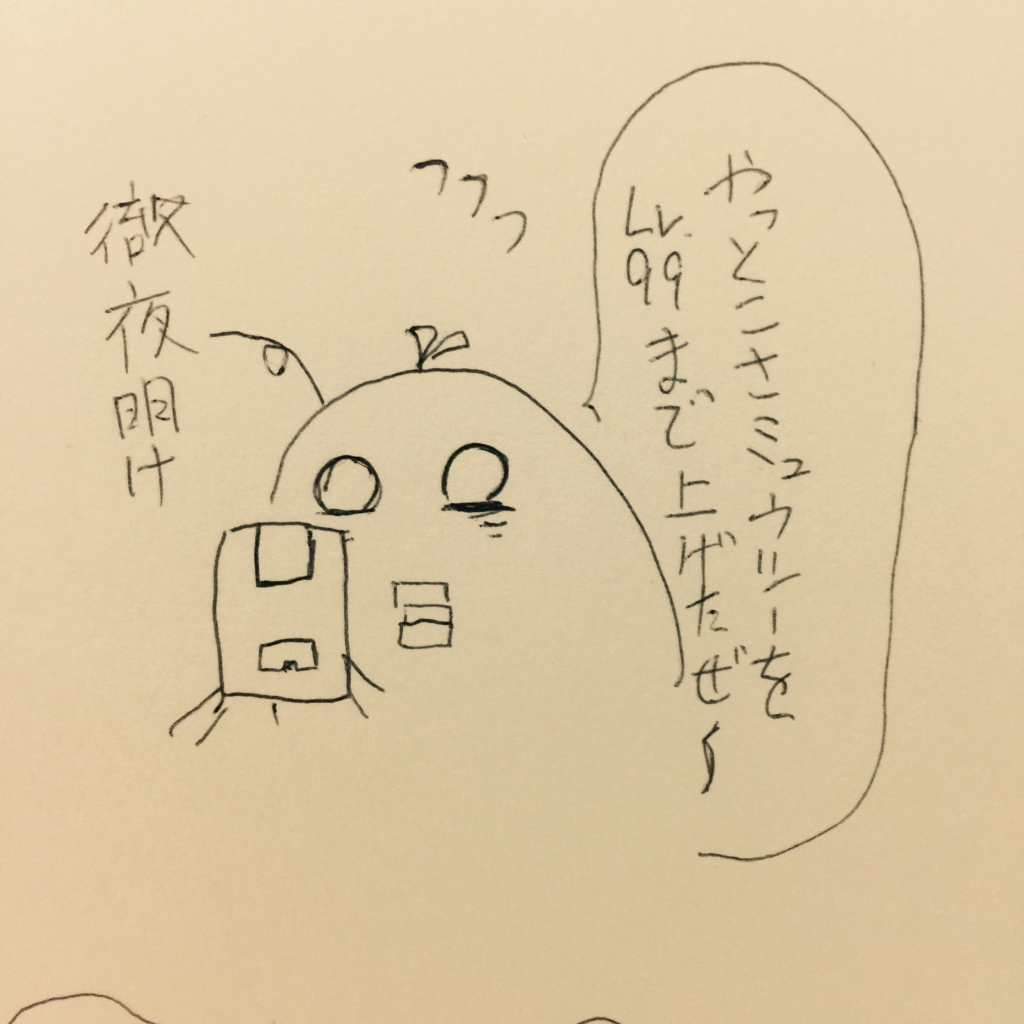 やっとこさミュウツーを
Lv.99まで上げたぜ〜
フフフ
徹夜明け